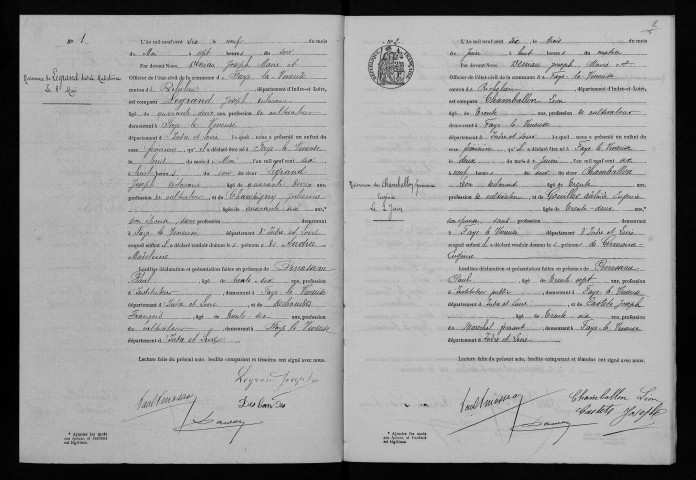 N° 1
Naissance de Legrand Andrée Madeleine
Le 8 Mai
L'An mil neuf cent six, le neuf du mois
de Mai à sept heures du soir
Par devant Nous, Joseph Marie et
Officier de l'état civil de la commune d Faye la Vineuse
canton d Richelieu département d'Indre-et-Loire,
est comparu Legrand Joseph
âgé de quarante deux ans, profession de cultivateur
demeurant à Faye la Vineuse
département d Indre et Loire lequel nous a présenté un enfant du
sexe féminin qu'il a déclaré être né à Faye la Vineuse
le huit du mois d Mai l'an mil neuf cent six
à huit heures du soir du sieur Legrand
Joseph âgé de quarante deux ans
profession de cultivateur et de Champigny
âgée de quarante six ans,*
son épouse, sans profession demeurant
à Faye la Vineuse département d'Indre et Loire
auquel enfant il a déclaré vouloir donner les prénoms de Andrée
Madeleine
Lesdites déclaration et présentation faites en présence de
Paul, âgé de trente six ans, profession
d'instituteur demeurant à Faye la Vineuse
département d'Indre et Loire, et de Desbourdes
François âgé de trente six ans, profession
de cultivateur demeurant à Faye la Vineuse
département d Indre et Loire
Lecture faite du présent acte, lesdits comparant et témoins ont signé avec nous.
Legrand Joseph
* Ajouter les mots
son épouse, si l'enfant
est légitime.
2
N° 2
RÉPUBLIQUE FRANÇAISE
Naissance de Chamballon Germaine
Eugénie
Le 2 Juin
L'An mil neuf cent six, le trois du mois
de Juin à huit heures du matin
Par devant Nous, Joseph Marie et
Officier de l'état civil de la commune d Faye-la-Vineuse
canton d Richelieu département d'Indre-et-Loire,
est comparu Chamballon Léon
âgé de trente ans, profession de cultivateur
demeurant à Faye la Vineuse
département d Indre et Loire lequel nous a présenté un enfant du
sexe féminin qu'il a déclaré être né à Faye la Vineuse
le deux du mois d Juin l'an mil neuf cent six
à neuf heures du soir du sieur Chamballon
Léon âgé de trente ans
profession de cultivateur et de Eugénie
âgée de trente-deux ans,*
son épouse, sans profession demeurant
à Faye la Vineuse département d'Indre et Loire
auquel enfant il a déclaré vouloir donner les prénoms de Germaine
Eugénie
Lesdites déclaration et présentation faites en présence de
Paul, âgé de trente sept ans, profession
d'instituteur public demeurant à Faye la Vineuse
département d Indre et Loire, et de Castets Joseph
âgé de trente six ans, profession
de Maréchal ferrant demeurant à Faye la Vineuse
département d Indre et Loire
Lecture faite du présent acte, lesdits comparant et témoins ont signé avec nous.
Chamballon Léon
Castets Joseph
* Ajouter les mots
son épouse, si l'enfant
est légitime.